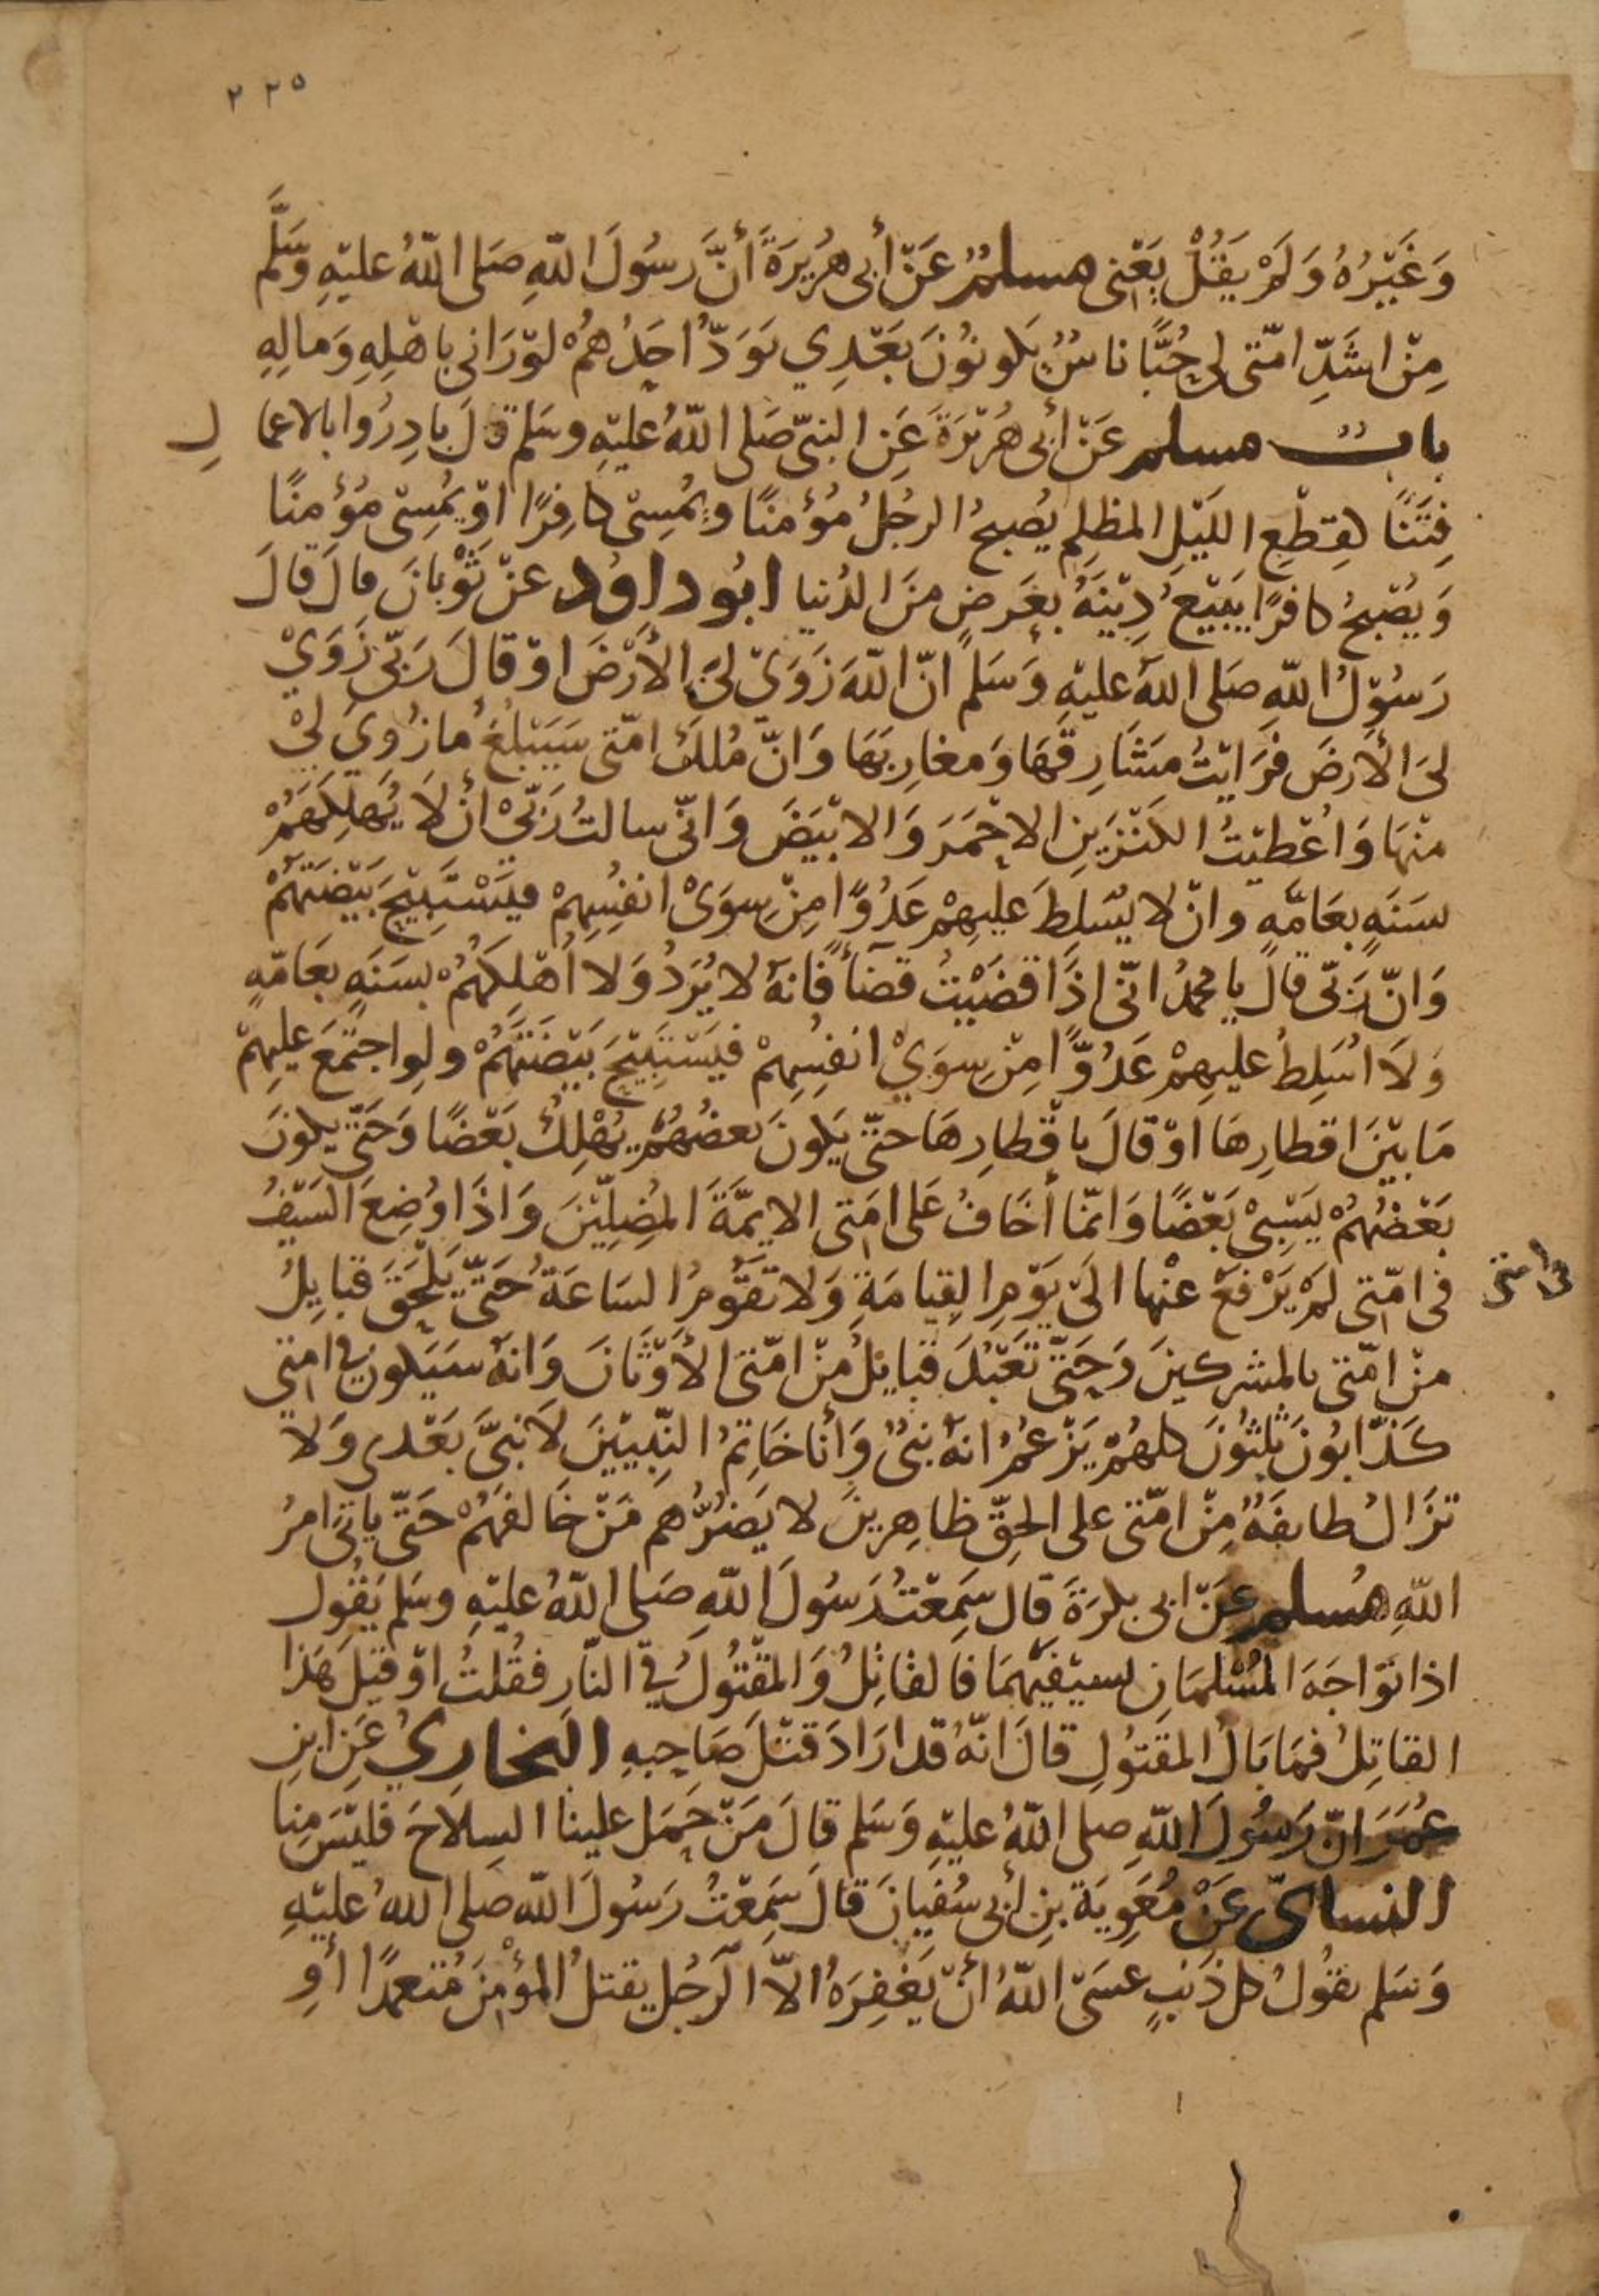 ٢٢٥
وَغَيْرُهُ وَلَمْ يَقُلْ يَعْنِي مسلمٌ عَنْ أبى هُرَيرَةَ أنَّ رَسُولَ اللّهِ صَلى اللّهُ عليْهِ وَسَلَّم
مِنْ اشَدِّ امّتى لى حُبًّا ناسٌ يَكونُونَ بَعْدِي يَوَدُّ احَدُهُمْ لوْ رَانى باهْلِهِ وَمالِهِ
بابٌ مسلم عَنْ أبى هُرَيْرَةَ عَنِ النبىّ صَلى اللّهُ عليْهِ وسَلم قالَ بادِرُوا بالاعمالِ
فِتَنًا كقِطَعِ اللَيْلِ المظلِمِ يُصبحُ الرجُلُ مُؤمنًا ويُمْسِى كافِرًا اوْ يُمسِى مُؤمنًا
وَيُصْبحُ كافرًا يَبيْعُ دِيْنَهُ بعَرَضٍ منَ الدُنيا ابُو داوُد عنْ ثَوْبانَ قالَ قالَ
رَسُوْلُ اللّهِ صَلى اللّهُ عليْهِ وَسَلم انّ اللّهَ زَوَىْ لىَ الأرْضَ اوْ قالَ رَبّى زَوَىْ
لىَ الأرضَ فرَايْتُ مَشَارِقَهَا وَمغارِبَهَا وَانّ مُلكَ امّتى سَيَبْلُغُ مازُوِيَ لىْ
منْهَا وَاعْطيْتُ الكَنْزَيْنِ الاحْمَرَ وَالابْيَضَ وَانّى سالتُ رَبّىْ أنْ لا يُهلِكَهَمُ
بسَنَةٍ بعَامَّةٍ وانْ لا يُسَلطَ عليهِمْ عَدُوًّا مِنْ سِوَىْ انفُسِهِمْ فيَسْتَبِيْحَ بَيْضَتَهُمْ
وَانّ رَبّى قالَ يا محمدُ انّى اذَا قضَيْتُ قضَآءً فانهُ لا يُرَدُ وَلا أهْلِكَهُمْ بسَنَةٍ بعَامّةٍ
وَلاَ اسَلِطُ عليهِمْ عَدُوًّا مِنْ سِوَىْ انفسِهِمْ فيَسْتَبِيْحَ بَيْضَتَهُمْ ولواجتَمَعَ عليهِمْ
مَا بيْنَ اقطارِهَا اوْ قالَ باقْطارِهَا حتّى يَكونَ بعضُهُمْ يُهْلِكُ بَعْضًا وَحَتّى يكونَ
بَعْضُهُمْ يَسْبِىْ بَعْضًا وَانمّا أخَافُ عَلى امّتى الايمّةَ المُضِلِّيْنَ وَاذَا وُضِعَ السَيْفُ
فى امّتى لمْ يَرْفعْ عنْها الىَ يَوْمِ القِيامَةِ وَلا تقُوْمُ الِسَاعَةُ حَتىّ يَلْحَقَ قبايِلُ
فى امتى
منْ امّتى بالمشركينَ وَحَتّى تَعْبُدَ قبايلُ منْ امّتى الأوْثَانَ وَانهُ سَيَكونُ فى امتى
كَذّابُونَ ثلثُونَ كلهُمْ يَزْعُمُ انهُ نبىٌ وَأنا خَاتِمُ النّبيينَ لاَ نبىَّ بَعْدى وَلاَ
تزَالُ طايفةٌ مِنْ امّتى على الحقّ ظاهِرينَ لا يَضُرُّهم مَنْ خالفهُمْ حَتّى ياتىَ امرُ
اللّهِ مُسلم عَنْ ابى بكرَةَ قالَ سَمِعْتُ رَسُولَ اللّهِ صَلى اللّهُ عليْهِ وسَلم يَقُول
اذا تَوَاجَهَ المُسْلمَانِ بسيْفَيْهِمَا فالقاتِلُ وَالمقْتُولُ فى النّارِ فقُلتُ اوْ قيْلَ هَذا
القاتِلُ فمَا بَالُ المقتوُلِ قالَ انّهُ قد ارَادَ قتْلَ صَاحِبهِ البخارِيُ عَنِ ابنِ
عُمَرَ انّ رَسُولَ اللّهِ صلى اللّهُ عليْهِ وَسَلم قالَ مَنْ حَمَل علينا السِلاحَ فليْسَ مِنا
النسائىّ عَنْ مُعَوِيَة بنِ أبى سُفيانَ قالَ سَمِعْتُ رَسُولَ اللّه صلى اللهُ عليْهِ
وَسَلم يقولُ كل ذَنبٍ عسَىَ اللّهُ أنْ يَغفِرَهُ الاّ الرَجُل يقتلُ المؤمِنَ مُتعمدًا أوِ